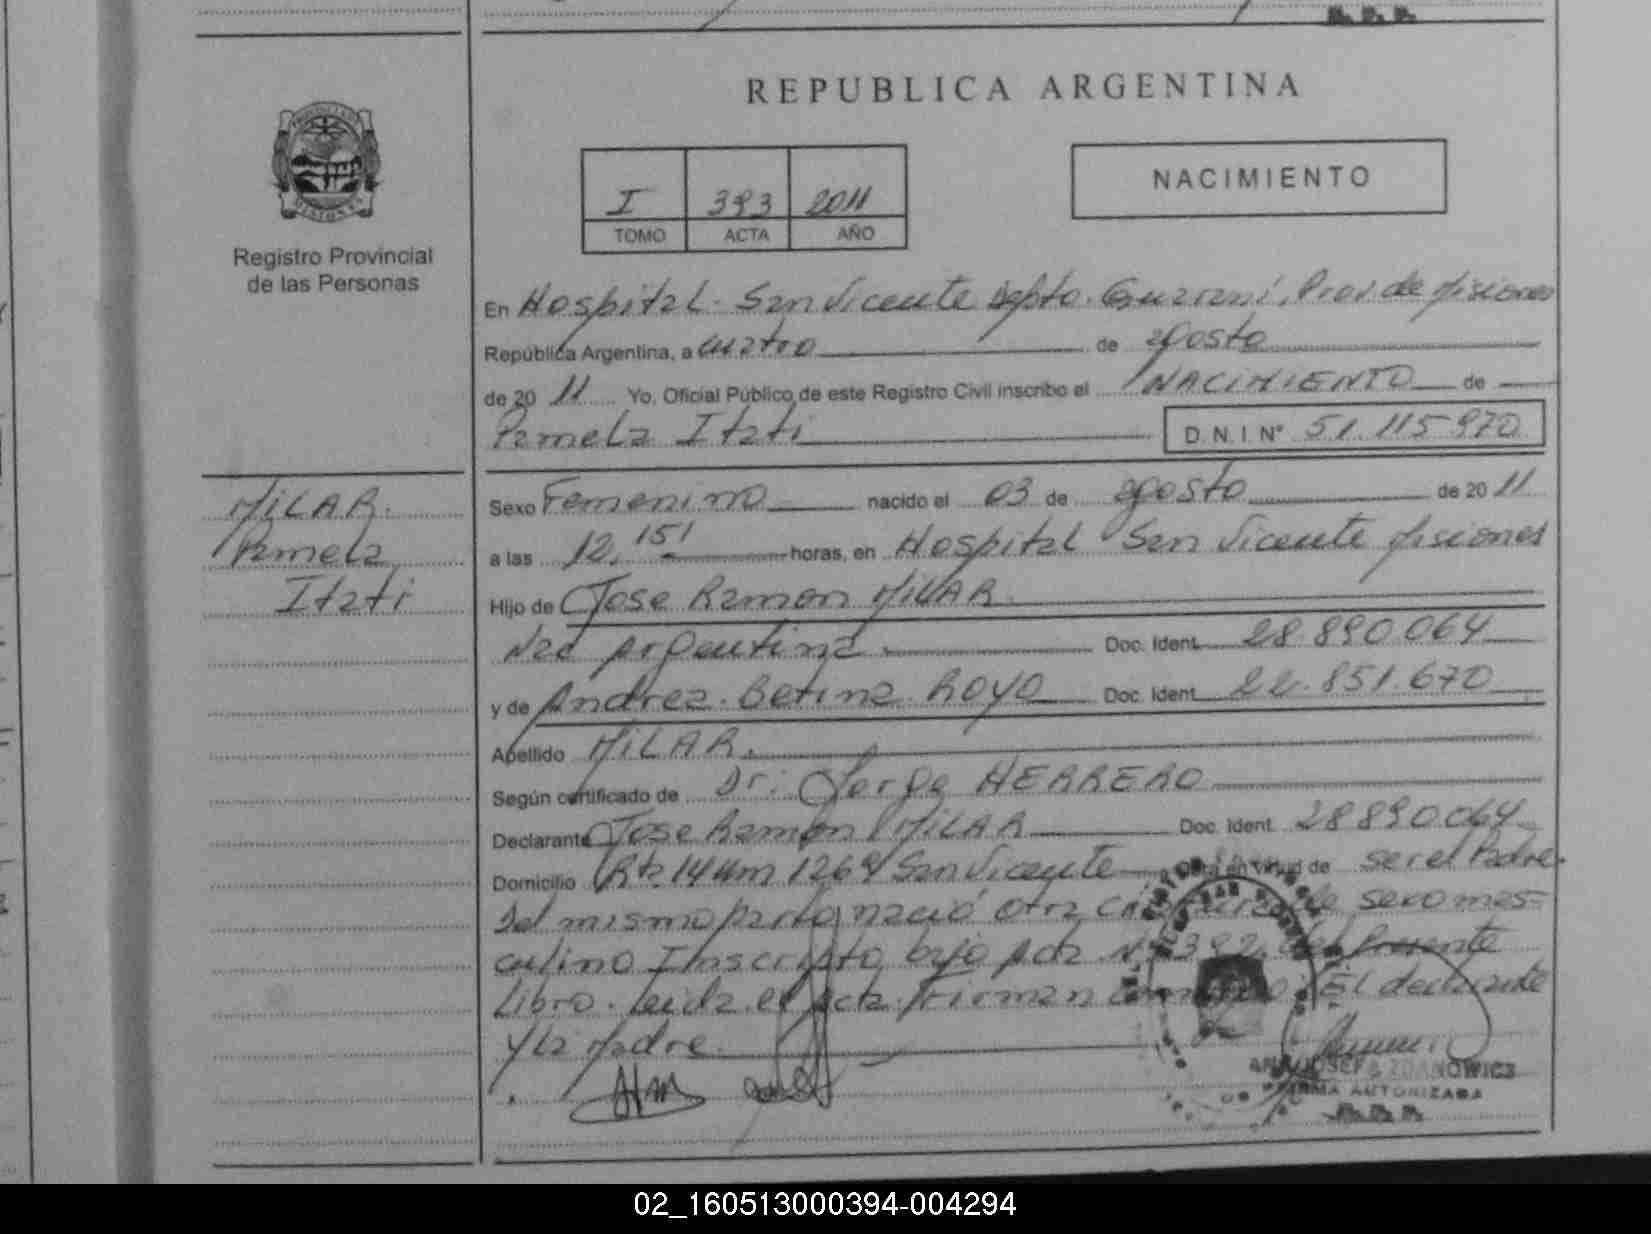 REPUBLICA ARGENTINA
I 393 2011
TOMO ACTA AÑO
NACIMIENTO
Registro Provincial
de las Personas
En Hospital San Vicente Depto. Guaraní, Prov. de Misiones
República Argentina, a cuatro de agosto
de 20 11 Yo. Oficial Público de este Registro Civil inscribo el NACIMIENTO de
Pamela Itati D.N.I. N° 51.115.970
MILAR.
Pamela
Itati
Sexo Femenino nacido el 03 de agosto de 20 11
a las 12,15' horas, en Hospital San Vicente Misiones
Hijo de Jose Ramon MILAR
Nac Argentina Doc. Ident. 28.890.064
y de Andrea Betina Royo Doc. Ident. 22.851.670
Apellido MILAR.
Según certificado de Dr: Jorge HERRERO
Declarante Jose Ramon MILAR Doc. Ident. 28890064
Domicilio Rta. 14 km 1269 San Vicente en virtud de ser el Padre.
Del mismo parto nació otra de sexo mas-
culino Inscripto bajo Acta N° 392 del Presente
Libro. Leida el Acta Firman El declarante
y la Madre.
FIRMA AUTORIZADA
02_160513000394-004294